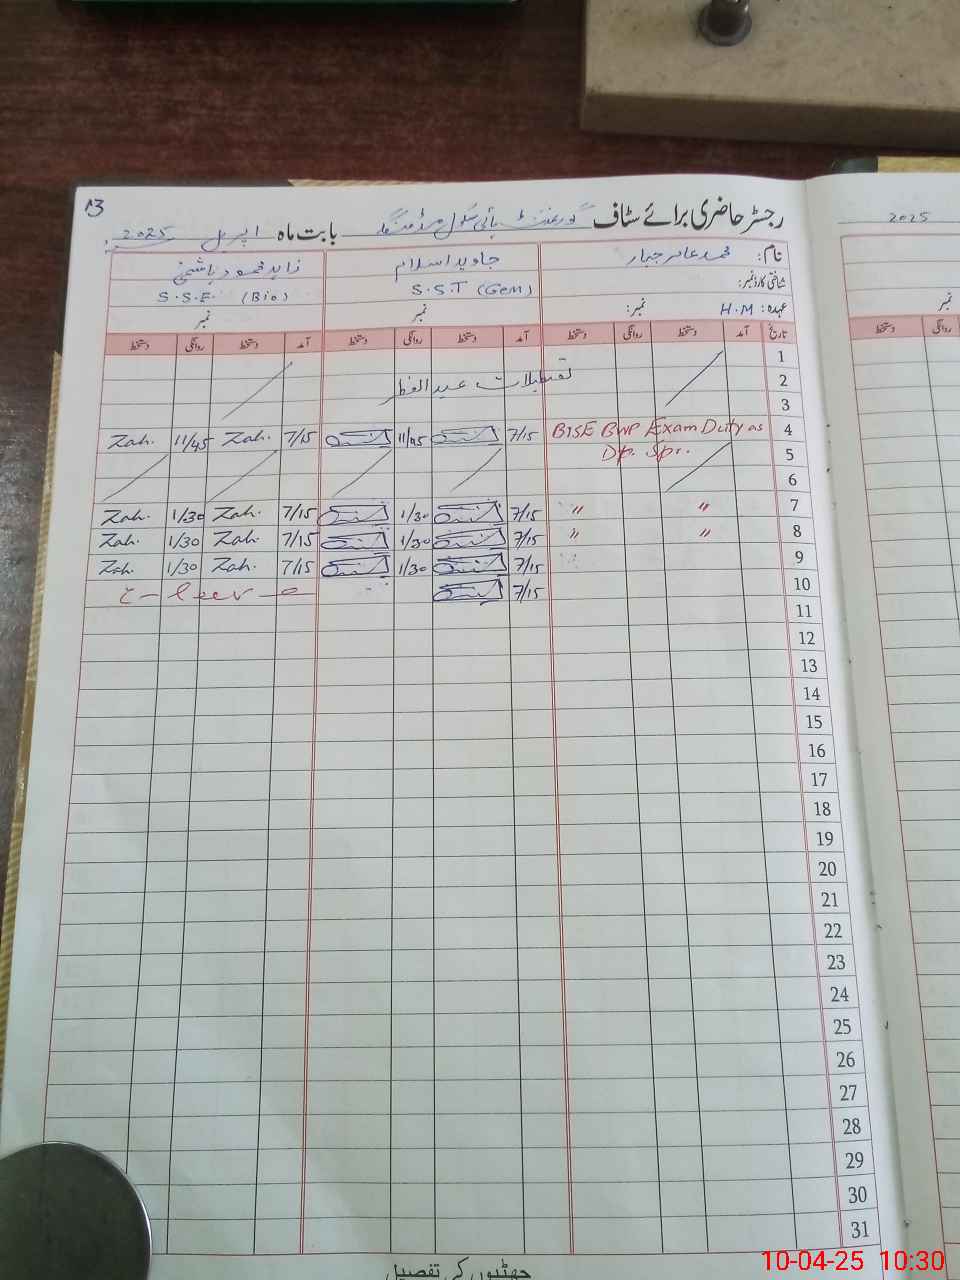 13
رجسٹر حاضری برائے سٹاف گورنمنٹ ہائی سکول بابت ماہ اپریل 2025
2025
نام: محمد عامر جبار جاوید اسلام زاہد محمود ہاشمی
شناختی کارڈ نمبر: S.S.T (Gem) S.S.E. (Bio)
عہدہ: H.M نمبر: نمبر نمبر
تاریخ آمد دستخط روانگی دستخط آمد دستخط روانگی دستخط آمد دستخط روانگی دستخط
1
2 تعطیلات عید الفطر
3
4 BISE BWP Exam Duty as 7/15 11/45 7/15 Zah. 11/45 Zah.
5 Dp. Spr.
6
7 " " 7/15 1/30 7/15 Zah. 1/30 Zah.
8 " " 7/15 1/30 7/15 Zah. 1/30 Zah.
9 7/15 1/30 7/15 Zah. 1/30 Zah.
10 7/15
11
12
13
14
15
16
17
18
19
20
21
22
23
24
25
26
27
28
29
30
31
چھٹیوں کی تفصیل
10-04-25 10:30